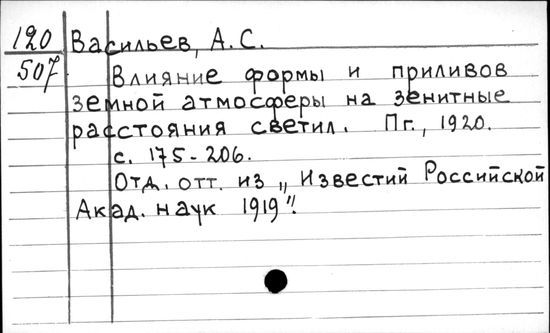 120 Васильев, А.С.
507 Влияние формы и приливов
земной атмосферы на зенитные
расстояния светил. Пг., 1920.
с. 175-206.
Отд. отт. из „Известий Российской
Акад. наук 1919".